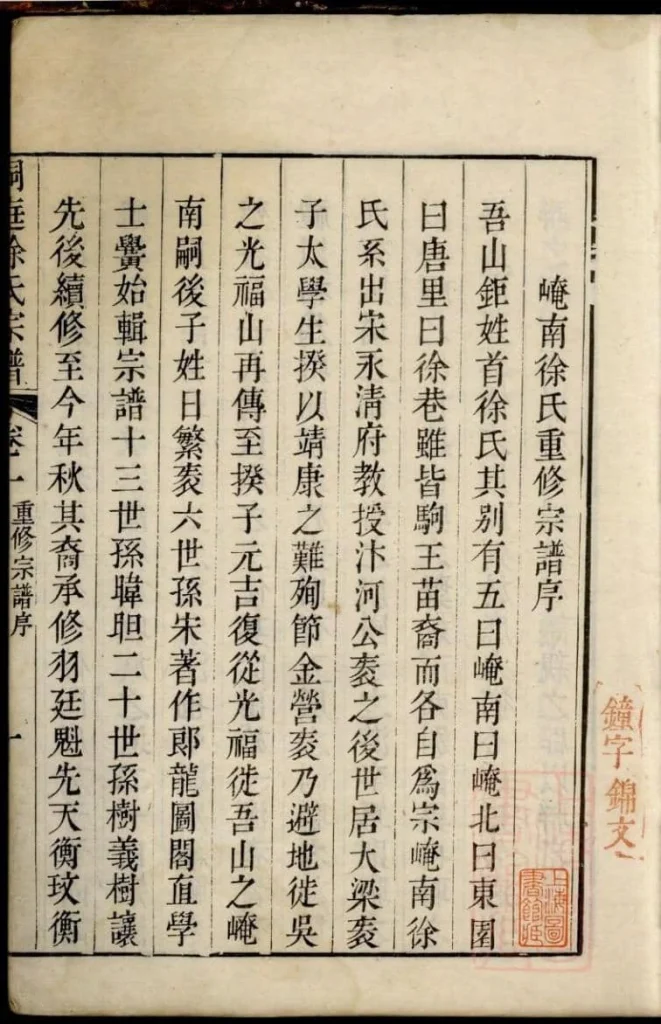 鐘字 錦文一
上海圖書館藏
崦南徐氏重修宗譜序
吾山鉅姓首徐氏其別有五曰崦南曰崦北曰東園
曰唐里曰徐巷雖皆駒王苗裔而各自爲宗崦南徐
氏系出宋永清府教授汴河公袤之後世居大梁袤
子太學生揆以靖康之難殉節金營袤乃避地徙吳
之光福山再傳至揆子元吉復從光福徙吾山之崦
南嗣後子姓日繁袤六世孫朱著作郎龍圖閣直學
士黌始輯宗譜十三世孫暐胆二十世孫樹義樹讓
先後續修至今年秋其裔承修羽廷魁先天衡玟衡
洞庭徐氏宗譜 卷一 重修宗譜序 一